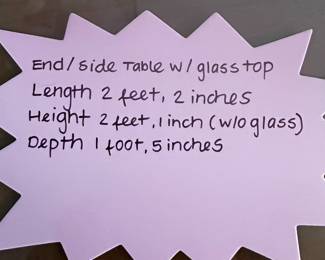 End/Side Table w/glass top
Length 2 feet, 2 inches
Height 2 feet, 1 inch (w/o glass)
Depth 1 foot, 5 inches